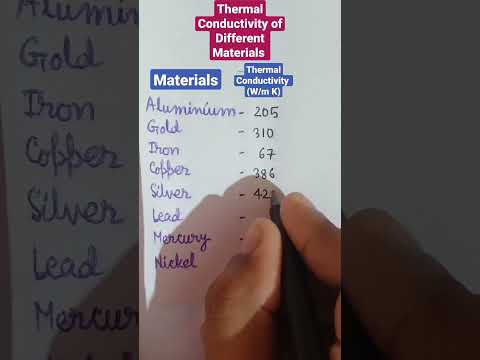 Thermal
Conductivity of
Different
Materials
Materials
Thermal
Conductivity
(W/m K)
Aluminium - 205
Gold - 310
Iron - 67
Copper - 386
Silver - 42
Lead -
Mercury -
Nickel
Gold
Iron
Copper
Silver
Lead
Mercury